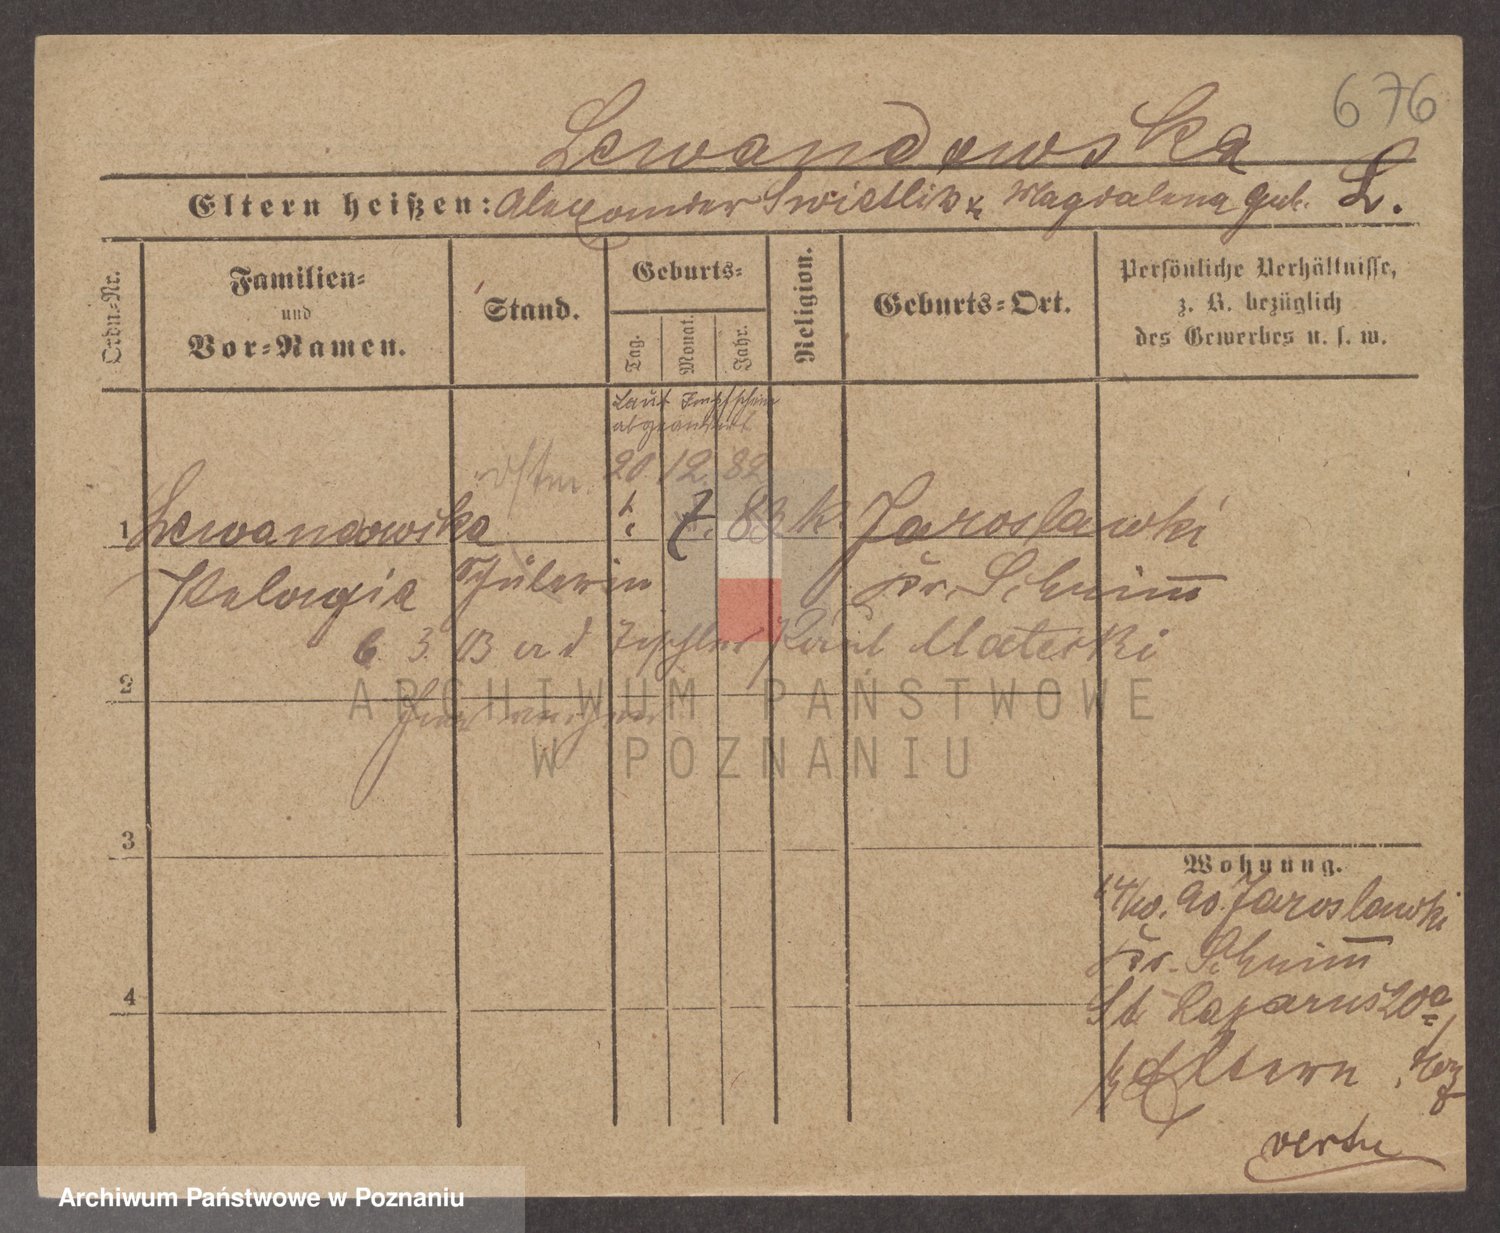 676
Lewandowska
Eltern heißen: Alexander Swietlik & Magdalena geb. L.
Ordn.-Nr.
Familien-
und
Vor-Namen.
Stand.
Geburts-
Tag.
Monat.
Jahr.
Religion.
Geburts-Ort.
Persönliche Verhältnisse,
z. B. bezüglich
des Gewerbes u. s. w.
Laut Impfschein
abgeändert
20. 12. 82
1 Lewandowska
1. 7. 83 k. Jaroslawki
Pelagia Schülerin Kr. Schrimm
6. 3. 03 a d Tischler Paul Materski
2
3
4
Wohnung.
90. Jaroslawki
Kr. Schrimm
St. Lazarus 20a
Eltern
verte
ARCHIWUM PAŃSTWOWE
W POZNANIU
Archiwum Państwowe w Poznaniu